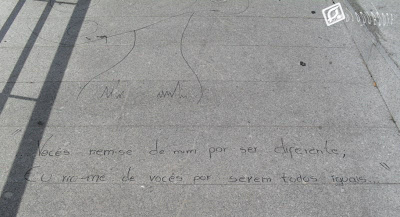 Vocês riem-se de mim por ser diferente,
Eu rio-me de vocês por serem todos iguais..."